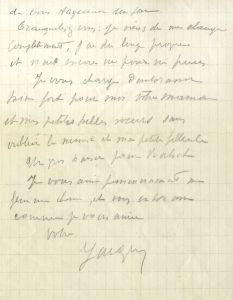 de vous
Tranquillisez vous. Je viens de me changer
complètement, j'ai du linge propre
et n'ai encore ni poux ni puces
Je vous charge d'embrasser
bien fort pour moi votre maman
et mes petites belles soeurs sans
oublier la mémé et ma petite filleule
un gros baiser pour
Je vous aime passionnément ma
et vous embrasse
comme je vous aime
Votre
Jacques